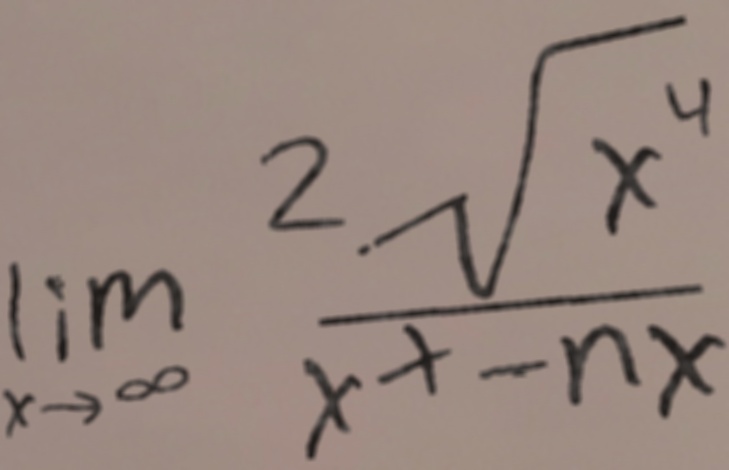 lim x→∞ 2·√x⁴ / x⁺ - nx